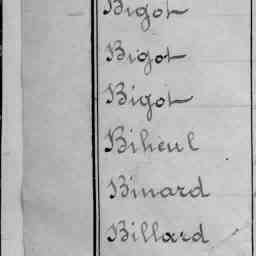 Bigot
Bigot
Bigot
Biheul
Binard
Billard